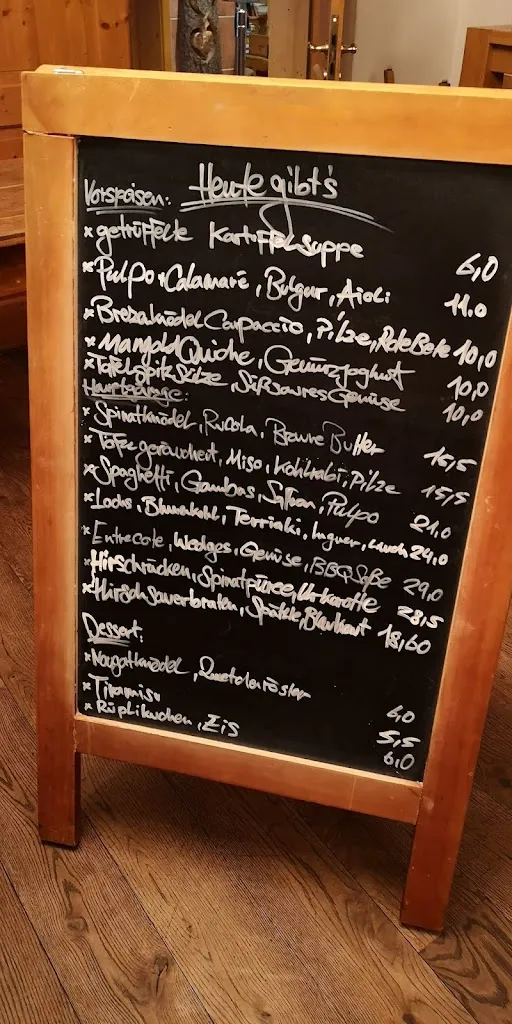 Heute gibt's
Vorspeisen:
× getrüffelte Kartoffelsuppe 6,0
× Pulpo + Calamare, Bulgur, Aioli 11.0
× Breznknödel Carpaccio, Pilze, Rote Bete 10,0
× Mangold Quiche, Gewürzjoghurt 10,0
× Tofuspitze, Süßsaures Gemüse 10,0
Hauptgänge:
× Spinatknödel, Rucola, Braune Butter 16,5
× Tofu geräuchert, Miso, Kohlrabi, Pilze 15,5
× Spaghetti, Gambas, Safran, Pulpo 21.0
× Lachs, Blumenkohl, Terriaki, Ingwer, Lauch 24,0
× Entrecote, Wedges, Gemüse, BBQ Soße 29,0
× Hirschrücken, Spinatpüree, Urkarotte 28,5
× Hirschsauerbraten, Spätzle, Blaukraut 18,60
Dessert:
× Nougatknödel, 6,0
× Tiramisu 5,5
× Rüblikuchen, Eis 6,0